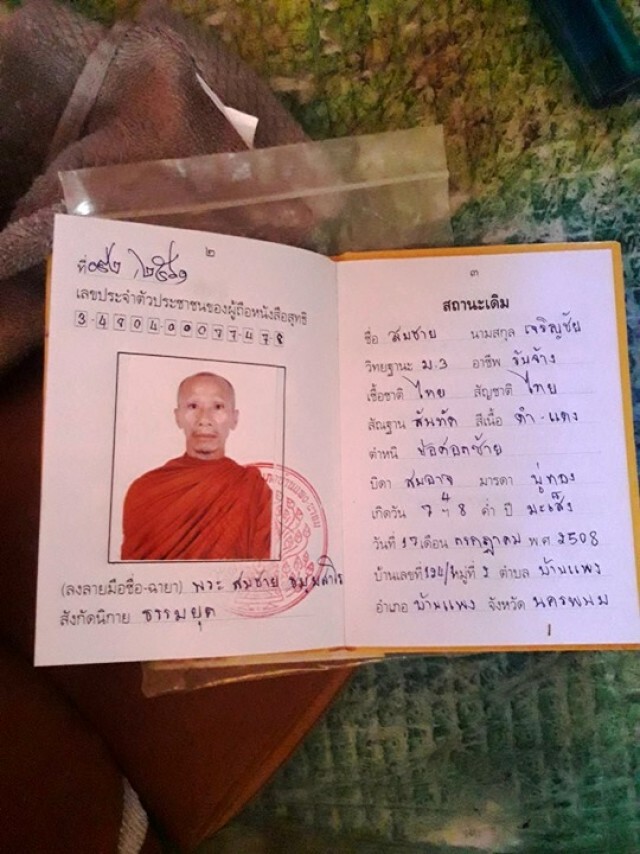 ๒
ที่
เลขประจำตัวประชาชนของผู้ถือหนังสือสุทธิ
(ลงลายมือชื่อ-ฉายา) พระ สมชาย
สังกัดนิกาย ธรรมยุต
๓
สถานะเดิม
ชื่อ สมชาย นามสกุล เจริญชัย
วิทยฐานะ ม.3 อาชีพ รับจ้าง
เชื้อชาติ ไทย สัญชาติ ไทย
สัณฐาน สันทัด สีเนื้อ ดำ-แดง
ตำหนิ ข้อศอกซ้าย
บิดา สมอาจ มารดา
เกิดวัน 7 4 ฯ 8 ค่ำ ปี มะเส็ง
วันที่ 17 เดือน กรกฎาคม พ.ศ 2508
บ้านเลขที่ หมู่ที่ ตำบล บ้านแพง
อำเภอ บ้านแพง จังหวัด นครพนม